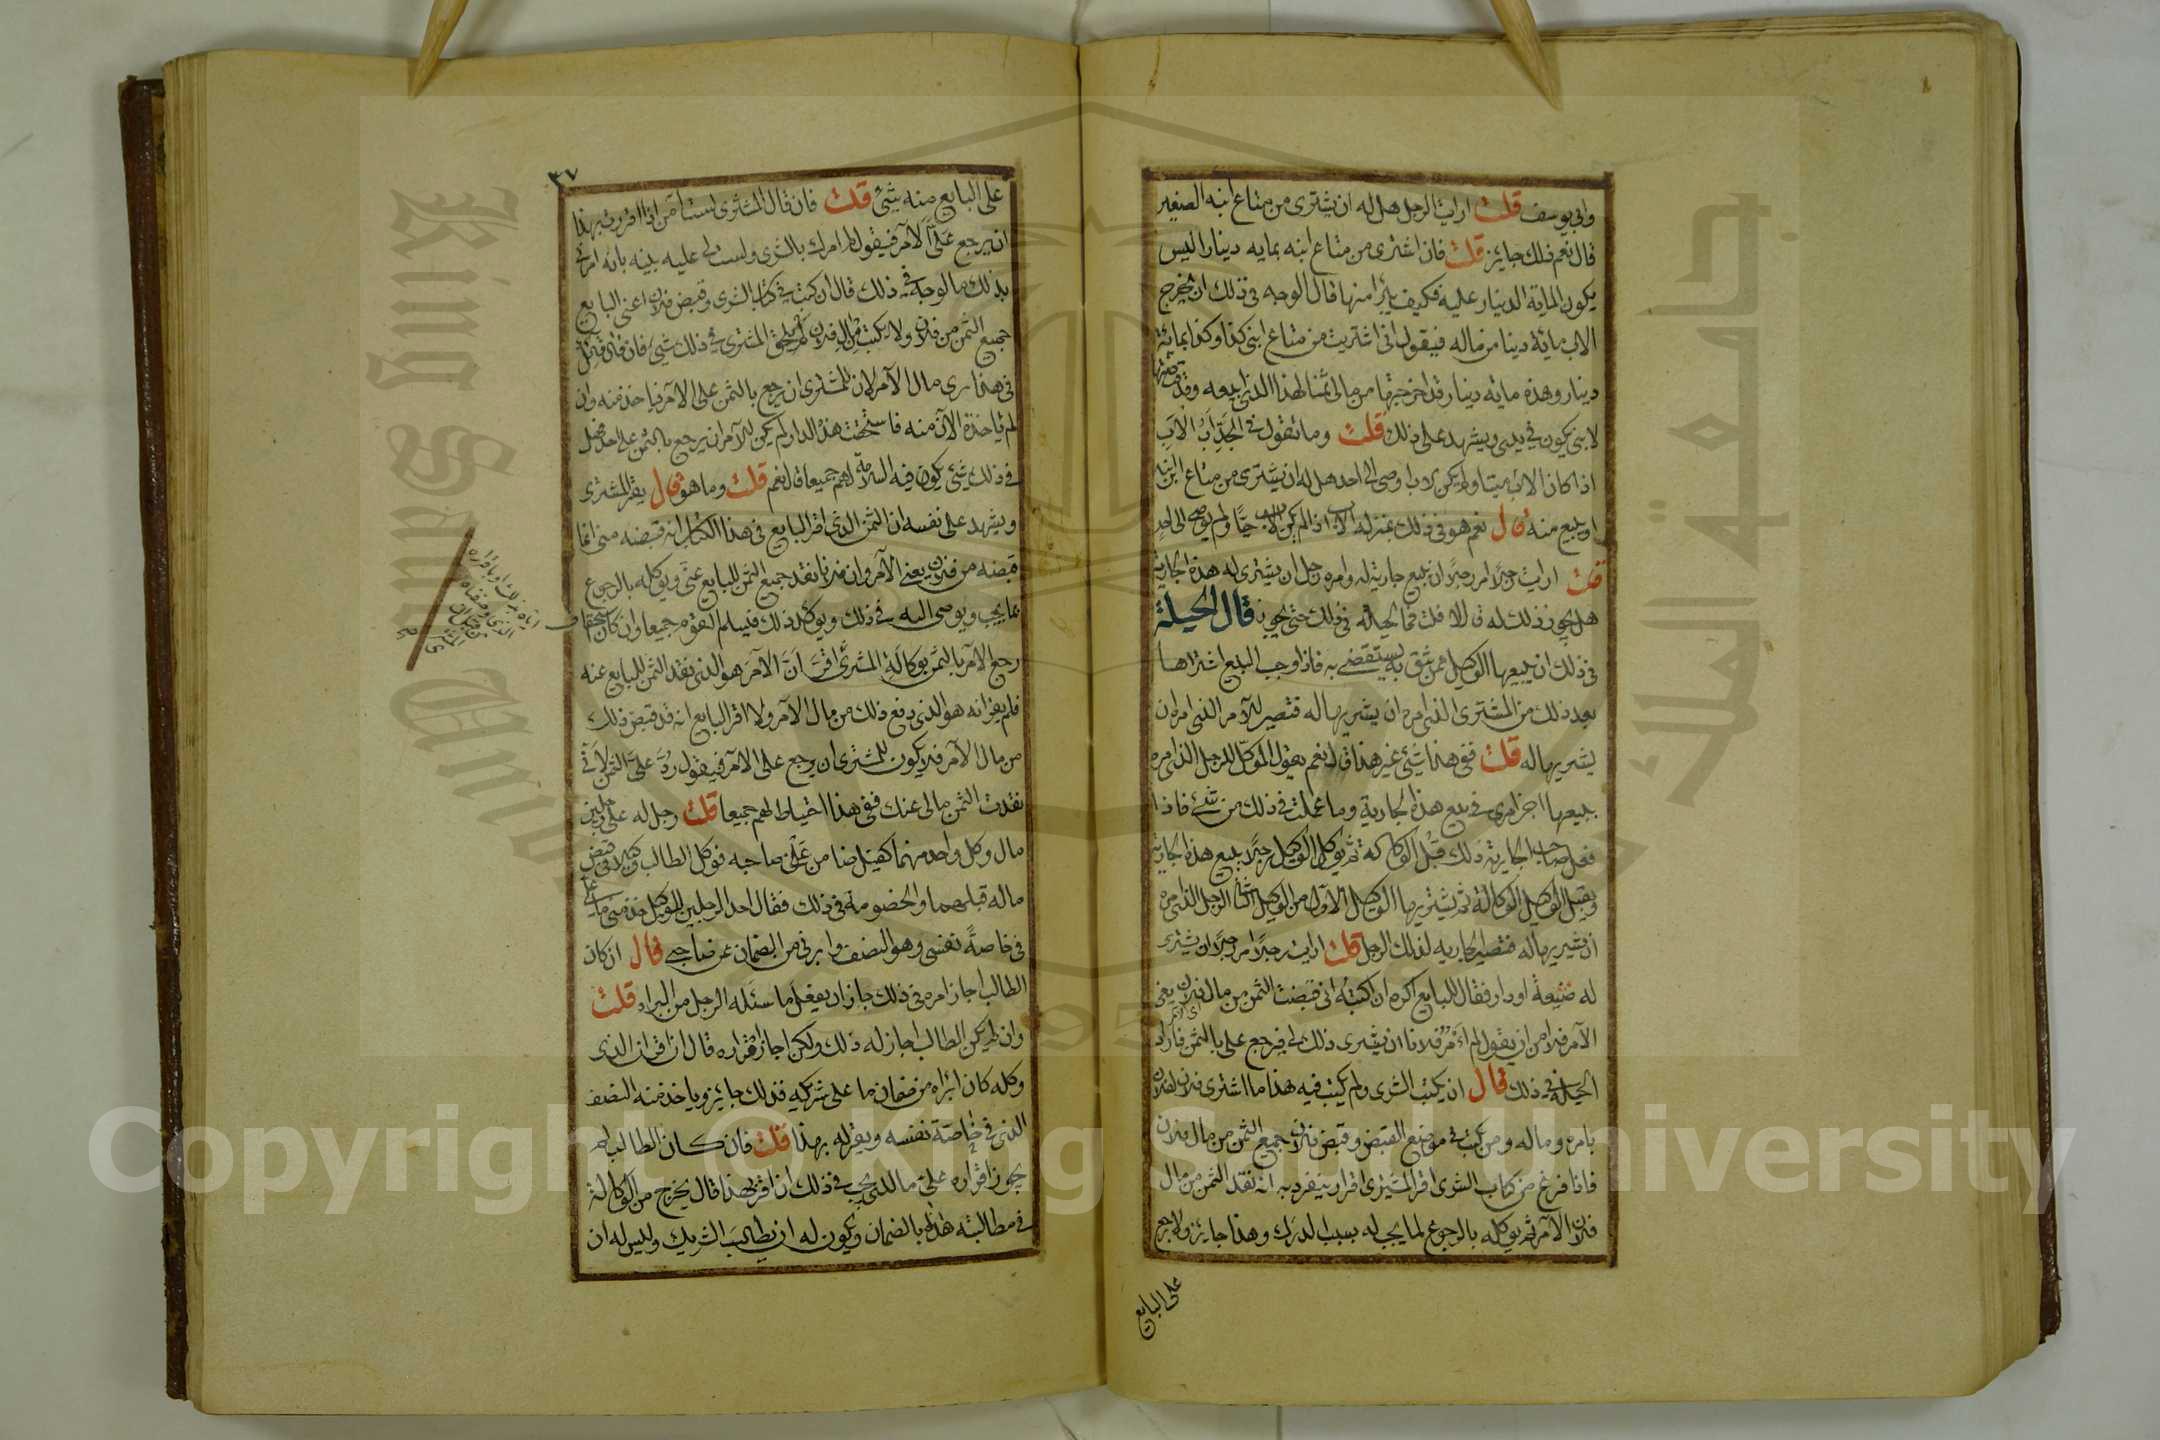 وابي يوسف قلت ارايت الرجل هل له ان يشترى من متاع ابنه الصغير
قال نعم ذلك جايز قلت فان اشترى من متاع ابنه بمايه دينارا ليس
يكون الماية الدينار عليه فكيف يبرا منها قال الوجه فى ذلك ان يخرج
الاب ماية دينا من ماله فيقول انى اشتريت من متاع ابنى كذا وكذا بمائة
دينار وهذه مايه دينار قد اخرجتها من مالى ثمنا لهذا الذى ابيعه وقد قبضتها
لابنى يكون فى يدى ويشهد على ذلك قلت وما تقول فى الجد اب الاب
اذا كان الاب ميتا ولم يكن الاب اوصى الى احد هل له ان يشترى من متاع ابن ابنه
او يبيع منه قال نعم هو فى ذلك بمنزله الاب اذا لم يكن الاب حيا ولم يوصى الى احد
قلت ارايت رجلا امر رجلا ان يبيع جارية له وامره رجل ان يشترى له هذه الجارية
هل يجوز ذلك له قال لا قلت فما الحيلة فى ذلك حتى يجوز قال الحيلة
فى ذلك ان يبيعها الوكيل ممن يثق به يستقضى به فاذا وجب البيع اشتراها
بعد ذلك من المشترى الذى امره ان يشتريها له فتصير للآمر الذى امره ان
يشتريها له قلت ففى هذا شئ غير هذا قال نعم يقول الموكل للرجل الذى امره
ببيعها اجز امرى فى بيع هذه الجارية وما عملت فى ذلك من شئ فاذا
فعل صاحب الجارية ذلك قبل الوكالة ثم يوكل الوكيل رجلا ببيع هذه الجارية
ويقبل الوكيل الوكالة ثم يشتريها الوكيل الاول من الوكيل الثانى الرجل الذى امره
ان يشتريها له فتصير الجاريه لذلك الرجل قلت ارايت رجلا امر رجلا ان يشترى
له ضيعة او دار فقال للبايع اكره ان اكتبه انى قبضت الثمن من مال فلان يعنى
اى الآمر
الآمر فلا امن ان يقول لم آمر فلانا ان يشترى ذلك لى فيرجع على بالثمن فاراد
الحيلة فى ذلك قال ان يكتب الشرى ولم يكتب فيه هذا ما اشترى فلان لفلان
بامره وماله ومن كتب فى موضع القبض وقبض فلان جميع الثمن من مال فلان
فاذا فرغ من كتاب الشرى اقر المشترى اقرار يتفرد به انه نقد الثمن من مال
فلان الآمر ثم يوكله بالرجوع لما يجب له بسبب الدرك وهذا جايز ولا يرجع
على البايع
٣٧
على البايع منه بشئ قلت فان قال المشترى لست آمن اذا اقررت بهذا
ان يرجع على الآمر فيقول لم امرك بالشرى وليست لى عليه بينه بانه امرنى
بذلك ما الوجه فى ذلك قال ان كتب فى كتاب الشرى وقبض فلان اعنى البايع
جميع الثمن من فلان ولا يكتب من مال فلان لم يلحق المشترى فى ذلك شئ فان قال قايل
فى هذا ارى مال الآمر لان للمشترى ان يرجع بالثمن على الآمر فياخذ منه وان
لم ياخذه الآن منه فاستحقت هذه الدار لم يكن للآمر ان يرجع بالثمن على احد فهل
فى ذلك شئ يكون فيه السلامة لهم جميعا قال نعم قلت وما هو قال يقر المشترى
ويشهد على نفسه ان الثمن الذى اقر البايع فى هذا الكتاب انه قبضه منى انما
قبضه من فلان يعنى الآمر وان فلانا نقد جميع الثمن للبايع عنى ويوكله بالرجوع
بما يجب ويوصى اليه فى ذلك ويوكد ذلك فيسلم القوم جميعا وان كان استحقاق
رجع الآمر بالثمن بوكالة المشترى اقر ان الآمر هو الذى نقد الثمن للبايع عنه
فلم يقر انه هو الذى دفع ذلك من مال الآمر ولا اقر البايع انه قد قبض ذلك
من مال الآمر فلا يكون للمشترى ان يرجع على الآمر فيقول رد على الثمن لانى
نقدت الثمن مالى عنك ففى هذا احتياط لهم جميعا قلت رجل له على رجلين
مال وكل واحد منهما كفيل ضامن على صاحبه فوكل الطالب وكيلا فى قبض
ماله قبلهما والخصومة فى ذلك فقال احد الرجلين للوكيل خذ منى ما على
فى خاصة نفسى وهو النصف وابرنى من الضمان عن صاحبى قال ان كان
الطالب اجاز امره فى ذلك جاز ان يفعل ما سئله الرجل من البراه قلت
وان لم يكن الطالب اجاز له ذلك ولكن اجاز اقراره قال ان اقر ان الذى
وكله كان ابراه من ضمان ما على شريكه فذلك جايز وياخذ منه النصف
الذى فى خاصة نفسه ويقر له بهذا قلت فان كان الطالب لم
يجوز اقراره على ما الذى يجب فى ذلك ان اقر بهذا قال يخرج من الوكالة
فى مطالبته هذا بالضمان ويكون له ان يطالب الشريك وليس له ان
King Saud University
جامعة الملك
1957
Copyright © King Saud University